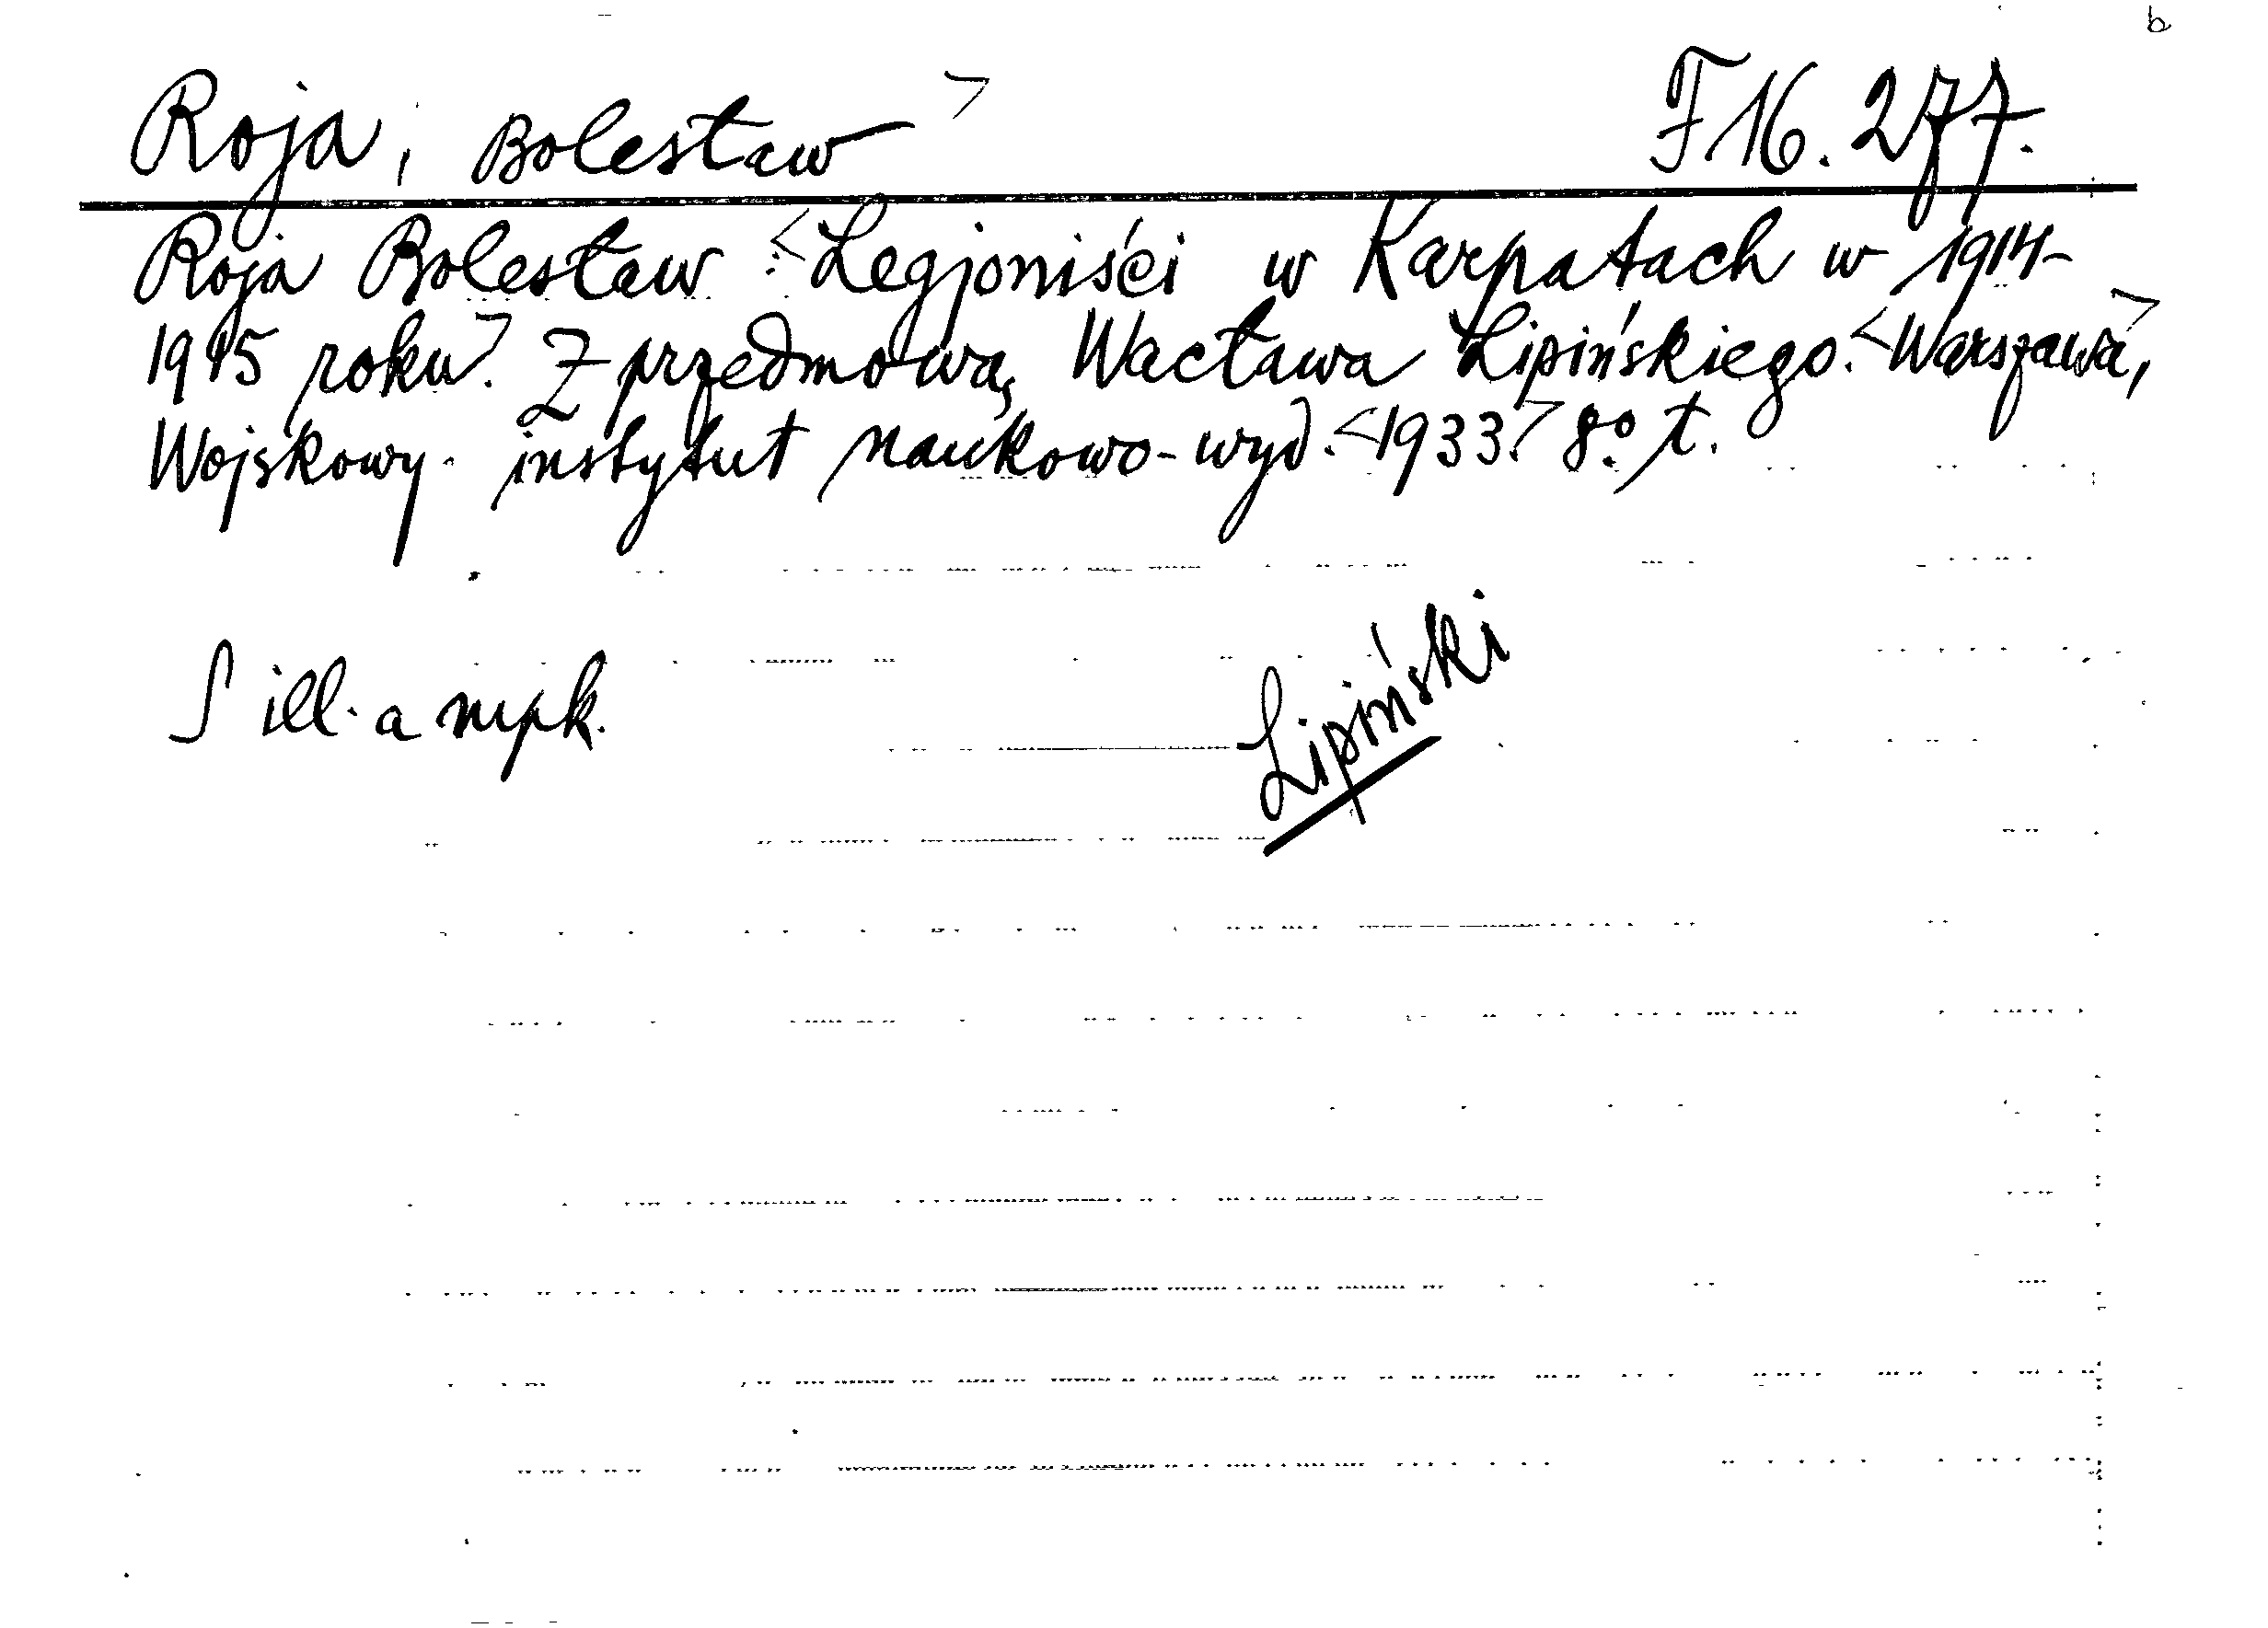 b
Roja, Bolesław > F 16.277.
Roja Bolesław: <Legjoniści w Karpatach w 1914-
1915 roku>. Z przedmową Wacława Lipińskiego. <Warszawa>,
Wojskowy instytut naukowo-wyd. <1933.> 8.º t.
S ill. a mpk.
Lipiński